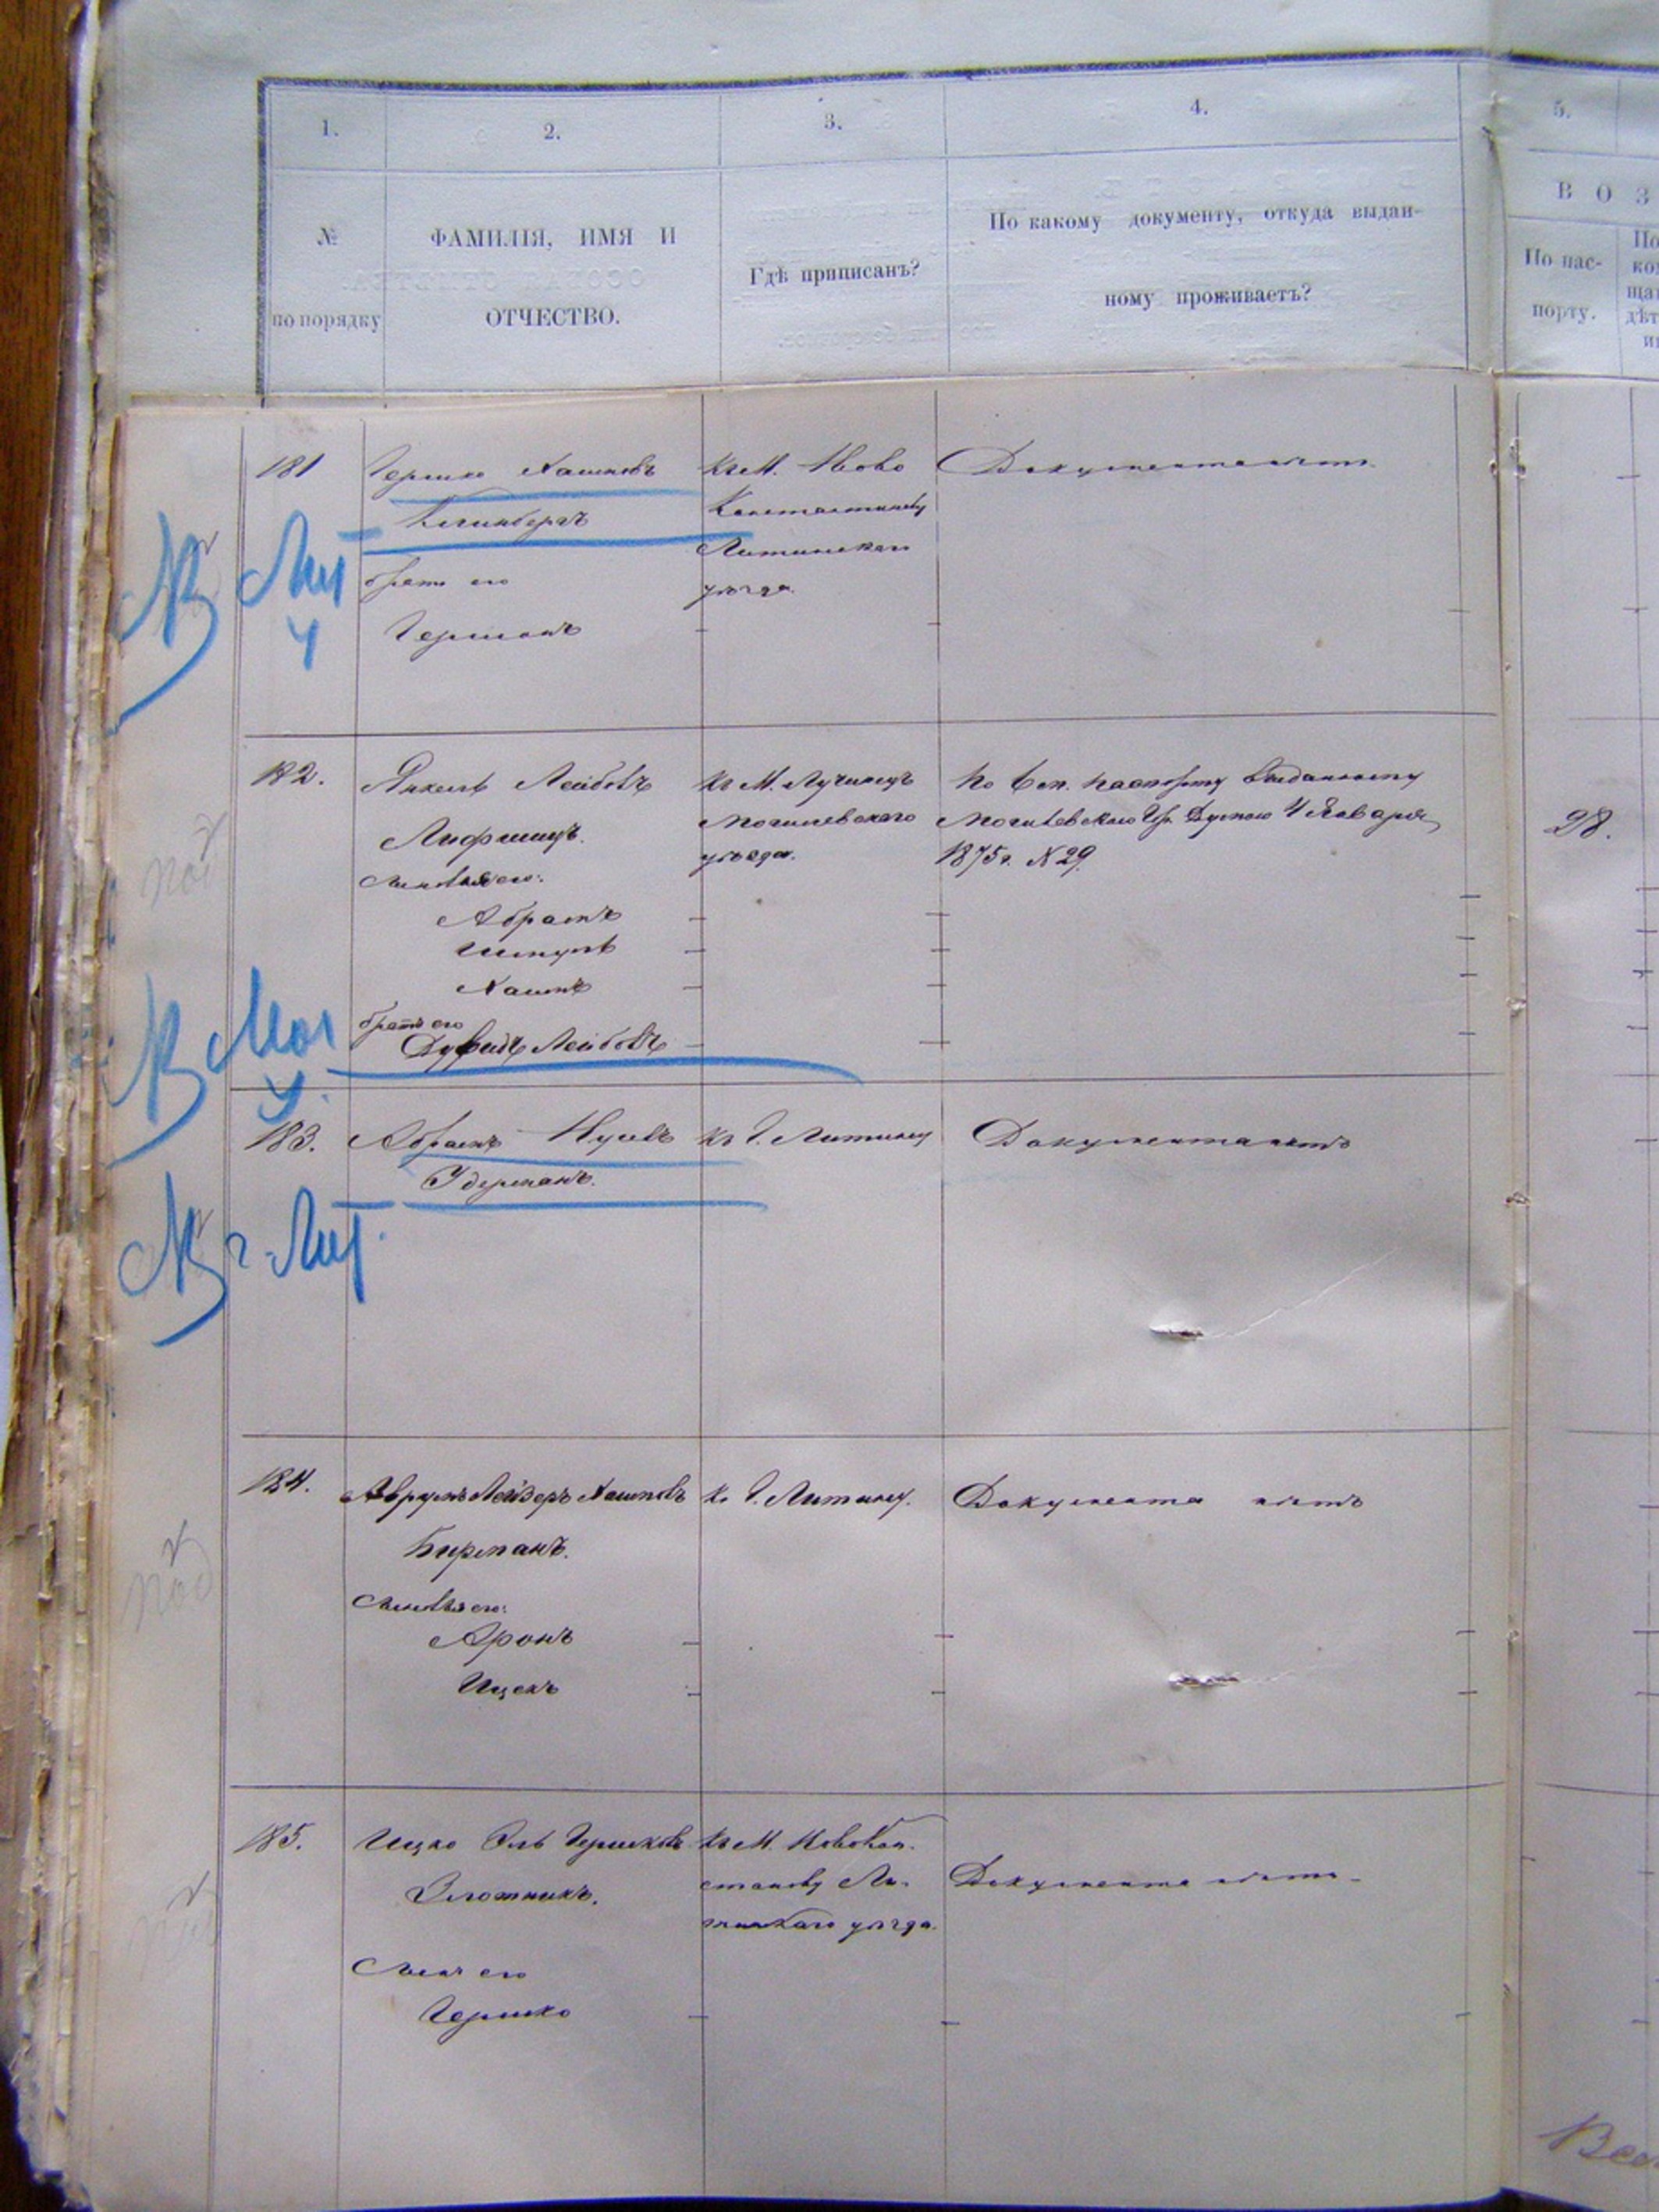 1.
2.
3.
4.
5.
№
по порядку
ФАМИЛІЯ, ИМЯ И
ОТЧЕСТВО.
Гдѣ приписанъ?
По какому документу, откуда выдан-
ному проживаетъ?
В О З
По пас-
порту.
181
Гершко Хаимовъ
Клинбергъ
братъ его
Гершонъ
Къ М. Ново
Константинову
Литинскаго
уѣзда.
Документа нѣтъ.
Лит
У
182.
Янкель Лейбовъ
Лифшицъ.
Сыновья его:
Абрамъ
Шмуль
Хаимъ
братъ его
Дувидъ Лейбовъ
Къ М. Лучинецъ
Могилевскаго
уѣзда.
По 6 м. паспорту выданному
Могилевскою Гр. Думою 4 Января
1875 г. № 29.
28.
Мог
У.
183.
Абрамъ Нусевъ
Удерманъ.
Къ Г. Литину
Документа нѣтъ
г. Лит.
184.
Аврумъ Лейзеръ Хаимовъ
Бирманъ.
Сыновья его:
Аронъ
Ицекъ
Къ Г. Литину.
Документа нѣтъ
под
185.
Ицко Эль Гершковъ
Злотникъ.
Сынъ его
Гершко
Къ М. Новокон.
стантину Ли-
тинскаго уѣзда.
Документа нѣтъ.